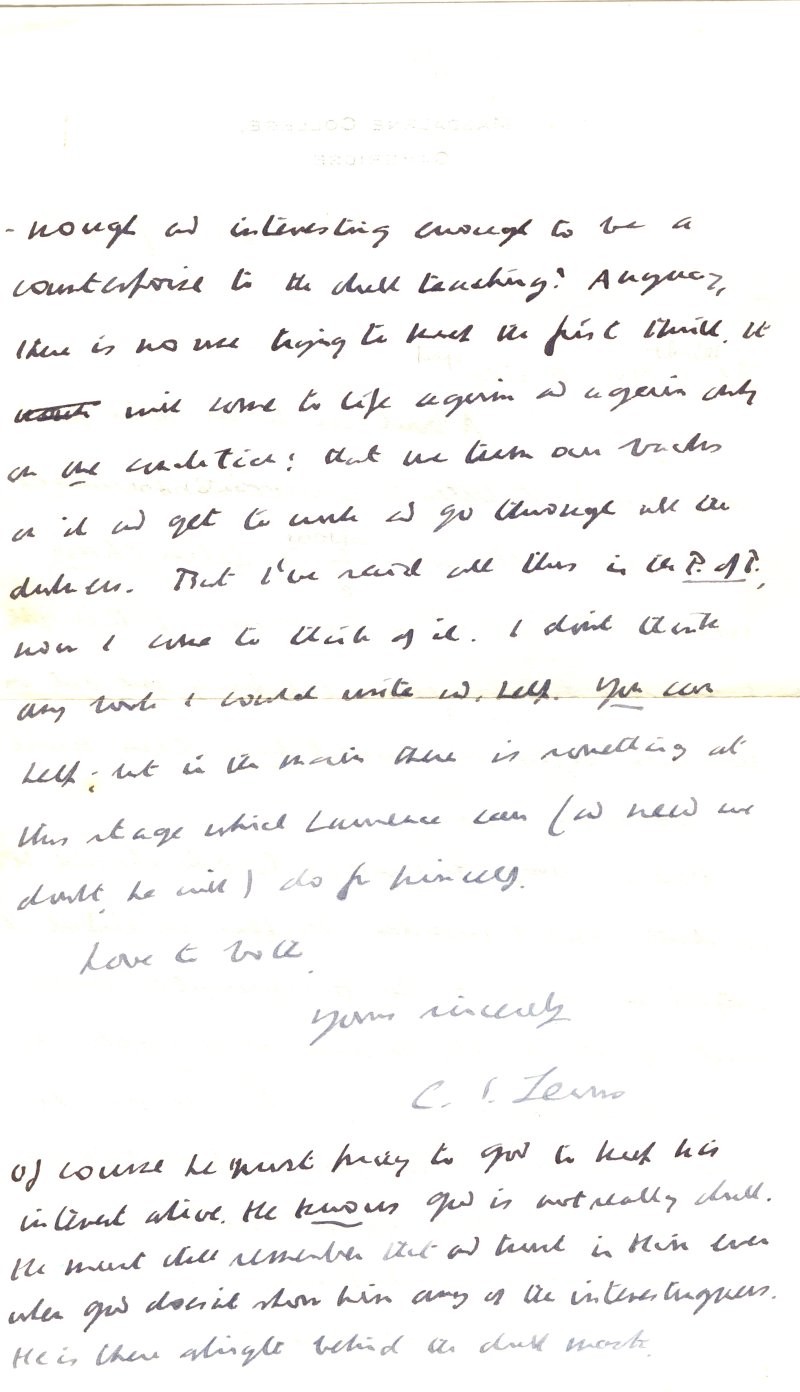 MAGDALENE COLLEGE,
CAMBRIDGE
-nough and interesting enough to be a
counterpoise to the dull teaching? Anyway,
there is no use trying to keep the first thrill. It
will come to life again and again only
on one condition: that we turn our backs
on it and get to work and go through all the
dulness. But I've said all this in the P. of P.,
now I come to think of it. I don't think
any book I could write wd. help. You can
help; but in the main there is something at
this stage which Laurence can (and need we
doubt, he will) do for himself.
Love to both.
Yours sincerely
C. S. Lewis
Of course he must pray to God to keep his
interest alive. He knows God is not really dull.
He must still remember that and trust in Him even
when God doesn't show him any of the interestingness.
He is there alright behind the dull mask.